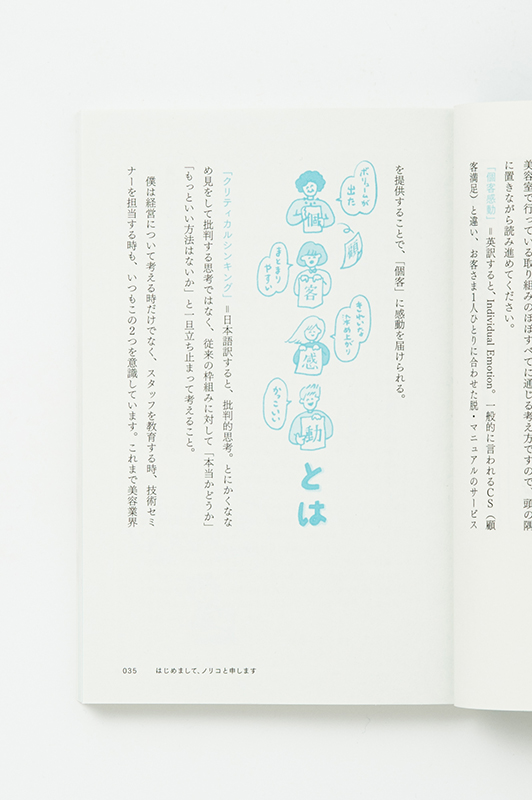 美容室で行っている取り組みのほぼすべてに通じる考え方ですので、頭の隅
に置きながら読み進めてください。
「個客感動」＝英訳すると、Individual Emotion。一般的に言われるCS（顧
客満足）と違い、お客さま1人ひとりに合わせた脱・マニュアルのサービス
を提供することで、「個客」に感動を届けられる。
ボリュームが
出た
顧
個
まとまり
やすい
客
きれいな
染め上がり
感
かっこいい
動
とは
「クリティカルシンキング」＝日本語訳すると、批判的思考。とにかくなな
め見をして批判する思考ではなく、従来の枠組みに対して「本当かどうか」
「もっといい方法はないか」と一旦立ち止まって考えること。
僕は経営について考える時だけでなく、スタッフを教育する時、技術セミ
ナーを担当する時も、いつもこの2つを意識しています。これまで美容業界
035 はじめまして、ノリコと申します